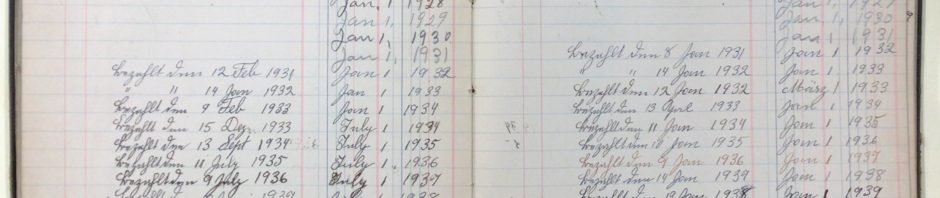 Jan. 1, 1928
Jan 1, 1929
Jan 1, 1930
Jan 1, 1931
Bezahlt den 12 Feb 1931 Jan 1, 1932
" " 14 Jan 1932 Jan 1 1933
Bezahlt den 9 Feb 1933 Jan 1 1934
Bezahlt den 15 Dez 1933 July 1 1934
Bezahlt den 13 Sept 1934 July 1 1935
Bezahlt den 11 July 1935 July 1. 1936
Bezahlt den 9 July 1936 July 1 1937
Jan 1, 1929
Jan 1, 1930
Jan 1, 1931
Bezahlt den 8 Jan 1931 Jan 1, 1932
" " 14 Jan 1932 Jan 1, 1933
Bezahlt den 12 Jan 1932 März 1 1933
Bezahlt den 13 April 1933 Jan 1 1934
Bezahlt den 11 Jan 1934 Jan 1 1935
Bezahlt den 10 Jan 1935 Jan 1 1936
Bezahlt den 9 Jan 1936 Jan 1 1937
Bezahlt den 14 Jan 1939 Jan 1 1938
Jan 1938 Jan 1 1939